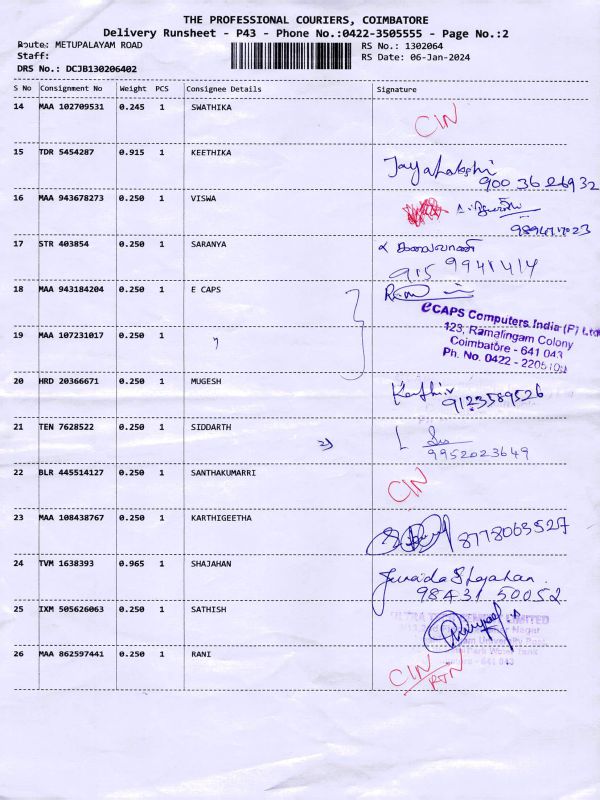 THE PROFESSIONAL COURIERS, COIMBATORE
Delivery Runsheet - P43 - Phone No.:0422-3505555 - Page No.:2
Route: METUPALAYAM ROAD
RS No.: 1302064
Staff:
RS Date: 06-Jan-2024
DRS No.: DCJB130206402
S No Consignment No Weight PCS Consignee Details Signature
14 MAA 102709531 0.245 1 SWATHIKA CIN
15 TDR 5454287 0.915 1 KEETHIKA Jayalakshi
16 MAA 943678273 0.250 1 VISWA
17 STR 403854 0.250 1 SARANYA கலைவாணி
915 9941414
18 MAA 943184204 0.250 1 E CAPS
eCAPS Computers India (P) Ltd
19 MAA 107231017 0.250 1 "
123, Ramalingam Colony
Coimbatore - 641 043
Ph. No. 0422 -
20 HRD 20366671 0.250 1 MUGESH
9123589526
21 TEN 7628522 0.250 1 SIDDARTH
9952023649
22 BLR 445514127 0.250 1 SANTHAKUMARRI CIN
23 MAA 108438767 0.250 1 KARTHIGEETHA 8778063527
24 TVM 1638393 0.965 1 SHAJAHAN Junaida Shajahan.
98431 50052
25 IXM 505626063 0.250 1 SATHISH
LIMITED
26 MAA 862597441 0.250 1 RANI CIN
RTN